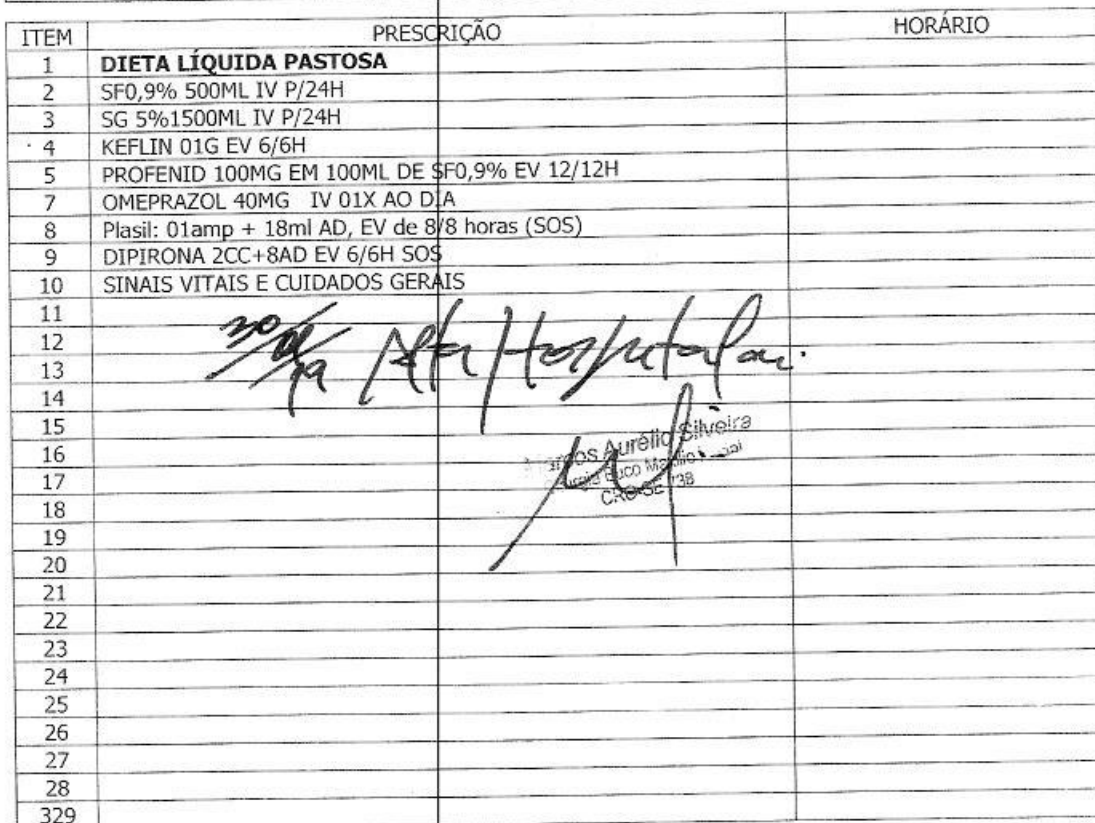 ITEM PRESCRIÇÃO HORÁRIO
1 DIETA LÍQUIDA PASTOSA
2 SF0,9% 500ML IV P/24H
3 SG 5%1500ML IV P/24H
4 KEFLIN 01G EV 6/6H
5 PROFENID 100MG EM 100ML DE SF0,9% EV 12/12H
7 OMEPRAZOL 40MG IV 01X AO DIA
8 Plasil: 01amp + 18ml AD, EV de 8/8 horas (SOS)
9 DIPIRONA 2CC+8AD EV 6/6H SOS
10 SINAIS VITAIS E CUIDADOS GERAIS
11
12 Alta Hospitalar
13
14
15 Aurélio Silveira
16 Buco
17 CRO-SE
18
19
20
21
22
23
24
25
26
27
28
329